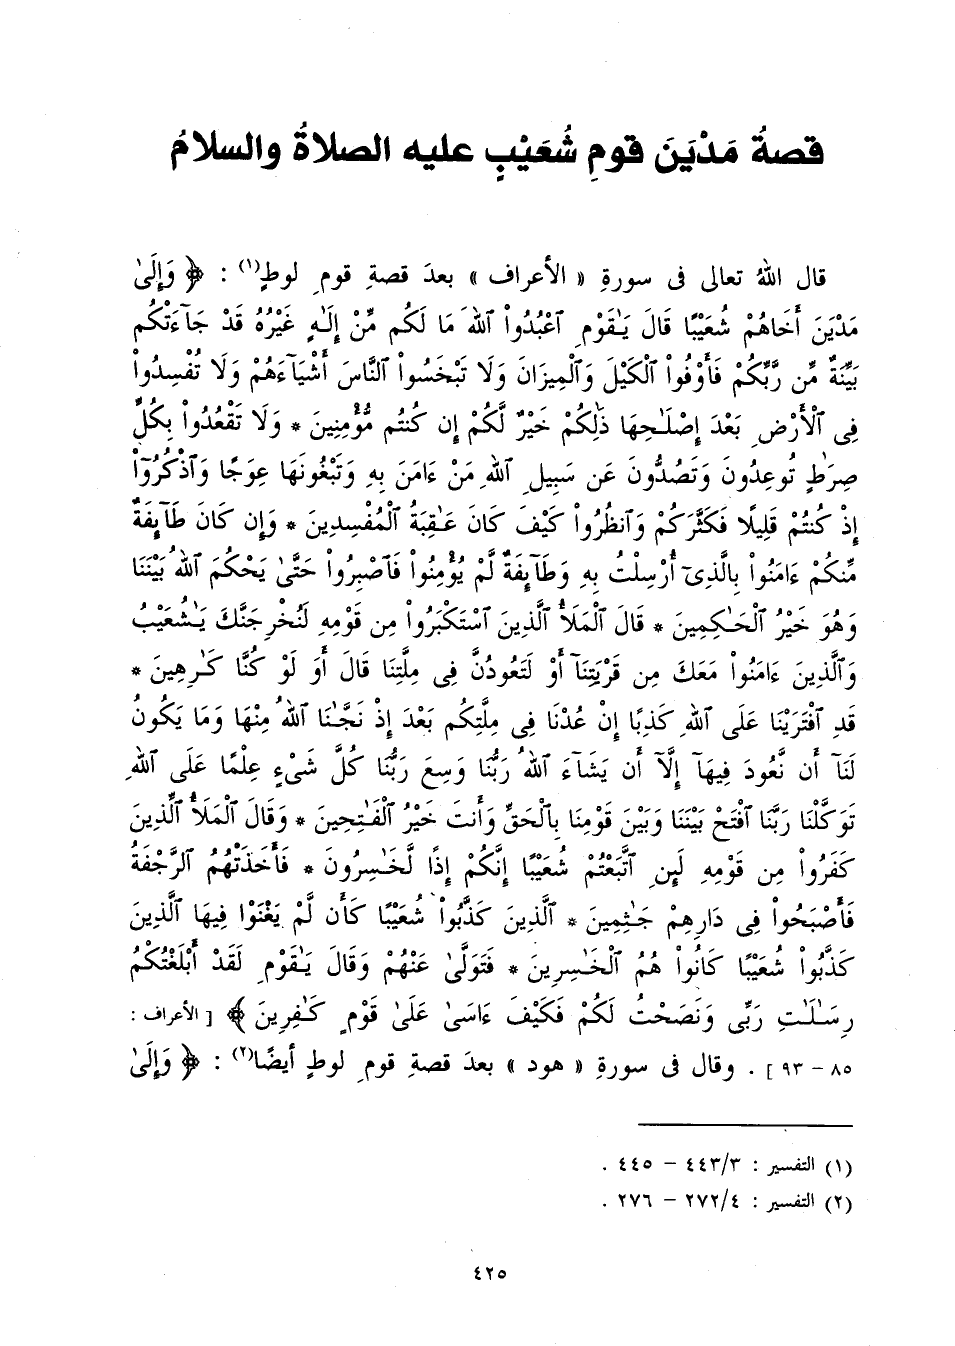 قصةُ مَدْيَنَ قومِ شُعَيْبٍ عليه الصلاةُ والسلامُ
قال اللهُ تعالى فى سورةِ « الأعراف » بعدَ قصةِ قومِ لوطٍ(١) : ﴿ وَإِلَىٰ
مَدْيَنَ أَخَاهُمْ شُعَيْبًا قَالَ يَـٰقَوْمِ ٱعْبُدُواْ ٱللهَ مَا لَكُم مِّنْ إِلَـٰهٍ غَيْرُهُ قَدْ جَآءَتْكُم
بَيِّنَةٌ مِّن رَّبِّكُمْ فَأَوْفُواْ ٱلْكَيْلَ وَٱلْمِيزَانَ وَلَا تَبْخَسُواْ ٱلنَّاسَ أَشْيَآءَهُمْ وَلَا تُفْسِدُواْ
فِى ٱلْأَرْضِ بَعْدَ إِصْلَـٰحِهَا ذَٰلِكُمْ خَيْرٌ لَّكُمْ إِن كُنتُم مُّؤْمِنِينَ * وَلَا تَقْعُدُواْ بِكُلِّ
صِرَٰطٍ تُوعِدُونَ وَتَصُدُّونَ عَن سَبِيلِ ٱللهِ مَنْ ءَامَنَ بِهِ وَتَبْغُونَهَا عِوَجًا وَٱذْكُرُوٓاْ
إِذْ كُنتُمْ قَلِيلًا فَكَثَّرَكُمْ وَٱنظُرُواْ كَيْفَ كَانَ عَـٰقِبَةُ ٱلْمُفْسِدِينَ * وَإِن كَانَ طَآئِفَةٌ
مِّنكُمْ ءَامَنُواْ بِالَّذِىٓ أُرْسِلْتُ بِهِ وَطَآئِفَةٌ لَّمْ يُؤْمِنُواْ فَٱصْبِرُواْ حَتَّىٰ يَحْكُمَ ٱللهُ بَيْنَنَا
وَهُوَ خَيْرُ ٱلْحَـٰكِمِينَ * قَالَ ٱلْمَلَأُ ٱلَّذِينَ ٱسْتَكْبَرُواْ مِن قَوْمِهِ لَنُخْرِجَنَّكَ يَـٰشُعَيْبُ
وَٱلَّذِينَ ءَامَنُواْ مَعَكَ مِن قَرْيَتِنَآ أَوْ لَتَعُودُنَّ فِى مِلَّتِنَا قَالَ أَوَ لَوْ كُنَّا كَـٰرِهِينَ *
قَدِ ٱفْتَرَيْنَا عَلَى ٱللهِ كَذِبًا إِنْ عُدْنَا فِى مِلَّتِكُم بَعْدَ إِذْ نَجَّـٰنَا ٱللهُ مِنْهَا وَمَا يَكُونُ
لَنَآ أَن نَّعُودَ فِيهَآ إِلَّآ أَن يَشَآءَ ٱللهُ رَبُّنَا وَسِعَ رَبُّنَا كُلَّ شَىْءٍ عِلْمًا عَلَى ٱللهِ
تَوَكَّلْنَا رَبَّنَا ٱفْتَحْ بَيْنَنَا وَبَيْنَ قَوْمِنَا بِالْحَقِّ وَأَنتَ خَيْرُ ٱلْفَـٰتِحِينَ * وَقَالَ ٱلْمَلَأُ ٱلَّذِينَ
كَفَرُواْ مِن قَوْمِهِ لَئِنِ ٱتَّبَعْتُمْ شُعَيْبًا إِنَّكُمْ إِذًا لَّخَـٰسِرُونَ * فَأَخَذَتْهُمُ ٱلرَّجْفَةُ
فَأَصْبَحُواْ فِى دَارِهِمْ جَـٰثِمِينَ * ٱلَّذِينَ كَذَّبُواْ شُعَيْبًا كَأَن لَّمْ يَغْنَوْا فِيهَا ٱلَّذِينَ
كَذَّبُواْ شُعَيْبًا كَانُواْ هُمُ ٱلْخَـٰسِرِينَ * فَتَوَلَّىٰ عَنْهُمْ وَقَالَ يَـٰقَوْمِ لَقَدْ أَبْلَغْتُكُمْ
رِسَـٰلَـٰتِ رَبِّى وَنَصَحْتُ لَكُمْ فَكَيْفَ ءَاسَىٰ عَلَىٰ قَوْمٍ كَـٰفِرِينَ ﴾ [ الأعراف :
٨٥ - ٩٣ ] . وقال فى سورةِ « هود » بعدَ قصةِ قومِ لوطٍ أيضًا(٢) : ﴿ وَإِلَىٰ
(١) التفسير : ٤٤٣/٣ - ٤٤٥ .
(٢) التفسير : ٢٧٢/٤ - ٢٧٦ .
٤٢٥